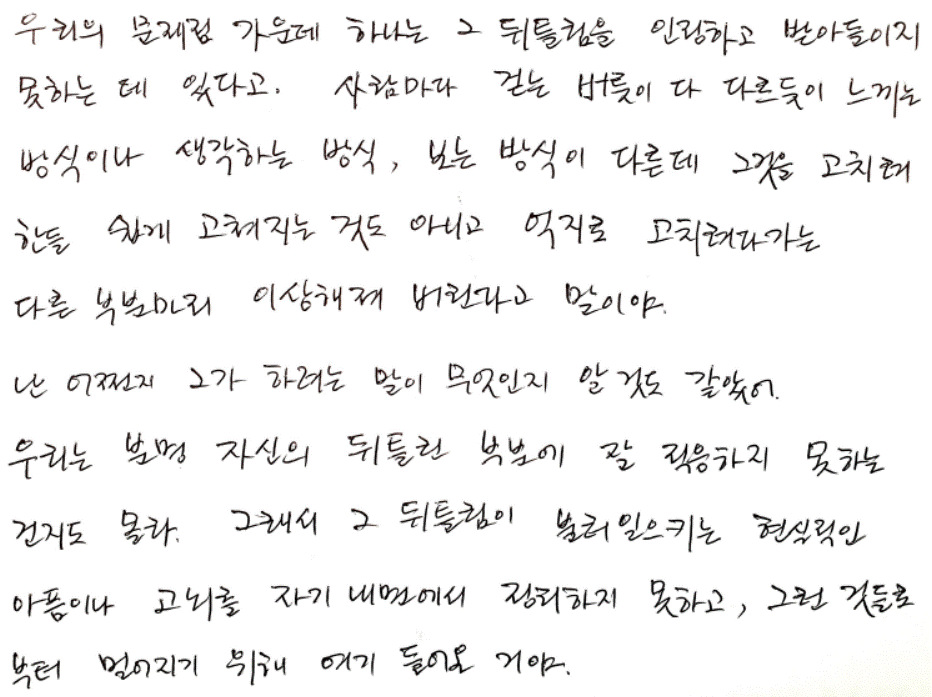 우리의 문제점 가운데 하나는 그 뒤틀림을 인정하고 받아들이지
못하는 데 있다고. 사람마다 걷는 버릇이 다 다르듯이 느끼는
방식이나 생각하는 방식, 보는 방식이 다른데 그것을 고치려
한들 쉽게 고쳐지는 것도 아니고 억지로 고치려다가는
다른 부분마저 이상해져 버린다고 말이야.
난 어쩐지 그가 하려는 말이 무엇인지 알 것도 같았어.
우리는 분명 자신의 뒤틀린 부분에 잘 적응하지 못하는
건지도 몰라. 그래서 그 뒤틀림이 불러일으키는 현실적인
아픔이나 고뇌를 자기 내면에서 정리하지 못하고, 그런 것들로
부터 멀어지기 위해 여기 들어온 거야.